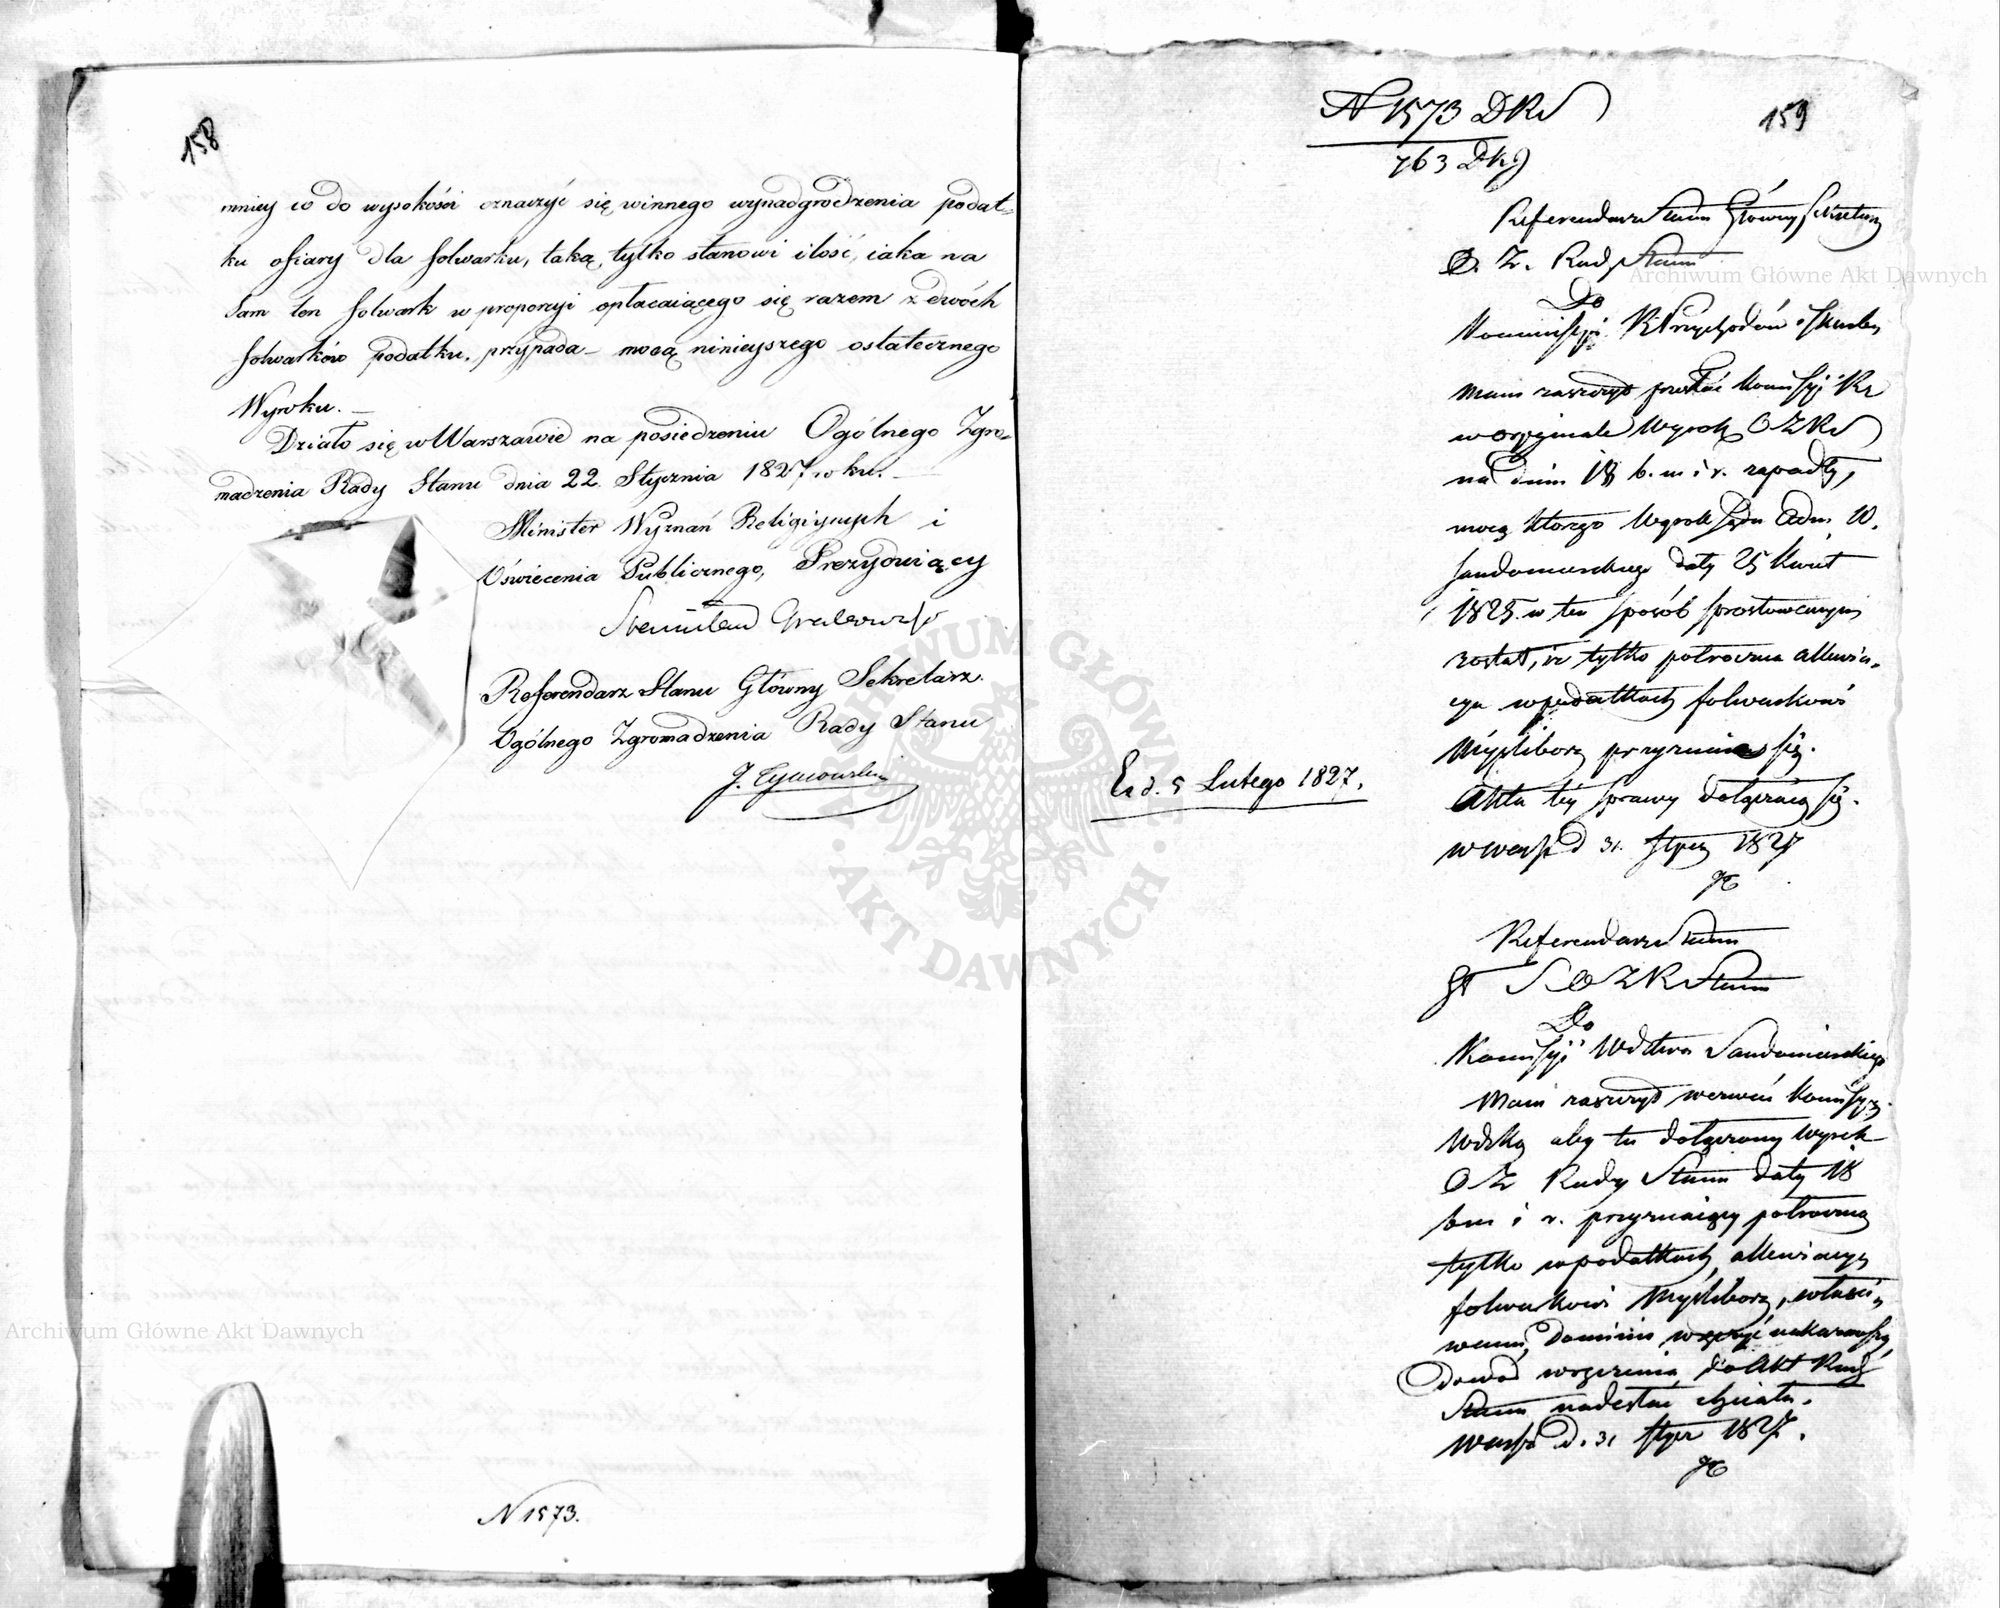 158
mniey co do wysokości oznaczyć się winnego wynadgrodzenia podat=
ku ofiary dla folwarku, taką tylko stanowi ilość, iaka na
sam ten folwark w proporcyi opłacaiącego się razem z dwóch
folwarków podatku, przypada – mocą ninieyszego ostatecznego
Wyroku. –
Działo się w Warszawie na posiedzeniu Ogólnego Zgro=
madzenia Rady Stanu dnia 22 Stycznia 1827 roku. –
Minister Wyznań Religiynych i
Oświecenia Publicznego, Prezyduiący
Stanisław Grabowski
Referendarz Stanu Główny Sekretarz
Ogólnego Zgromadzenia Rady Stanu
J. Tymowski
N 1573.
159
N 1573 DRS
763 DKg
Referendarz Stanu Główny Sekretarz
O. Z. Rady Stanu
Do
Kommissyi R Przychodów i Skarbu
Mam zaszczyt przesłać Komissyi Rz
w oryginale Wyrok OZRS
na dniu 18 b. m i r. zapadły,
mocą którego Wyrok Sądu Adm. W.
Sandomierskiego daty 25 Kwiet
1825 w ten sposób sprostowanym
został, iż tylko półroczna allewia-
cya w podatkach folwarkowi
Myślibórz przyznaie się.
Akta tey sprawy dołączaią się.
w Warsz d 31. Stycz 1827
Ex d. 5 Lutego 1827.
Referendarz Stanu
Gł S O Z R Stanu
Do
Komissyi Wdztwa Sandomierskiego
Mam zaszczyt wezwać Komissyą
Wdzką aby tu dołączony Wyrok
O Z Rady Stanu daty 18
bm i r. przyznaiący półroczną
tylko w podatkach allewiacyą
folwarkowi Myślibórz, właści-
wemu Dominio wręczyć nakazawszy
dowód wręczenia do Akt Rady
Stanu nadesłać chciała.
Warsz d. 31 Stycz 1827.
Archiwum Główne Akt Dawnych
Archiwum Główne Akt Dawnych
ARCHIWUM GŁÓWNE · AKT DAWNYCH ·